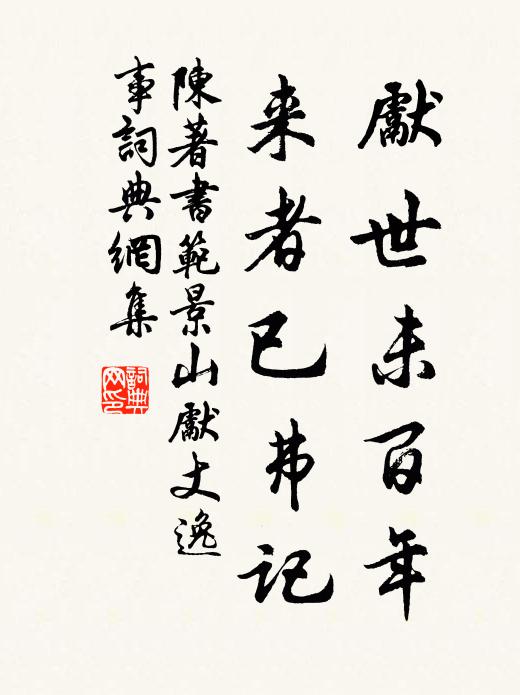 獻世未百年
来者已弗記
陳著書範景山獻丈逸
事詞典網集
詞典
网印